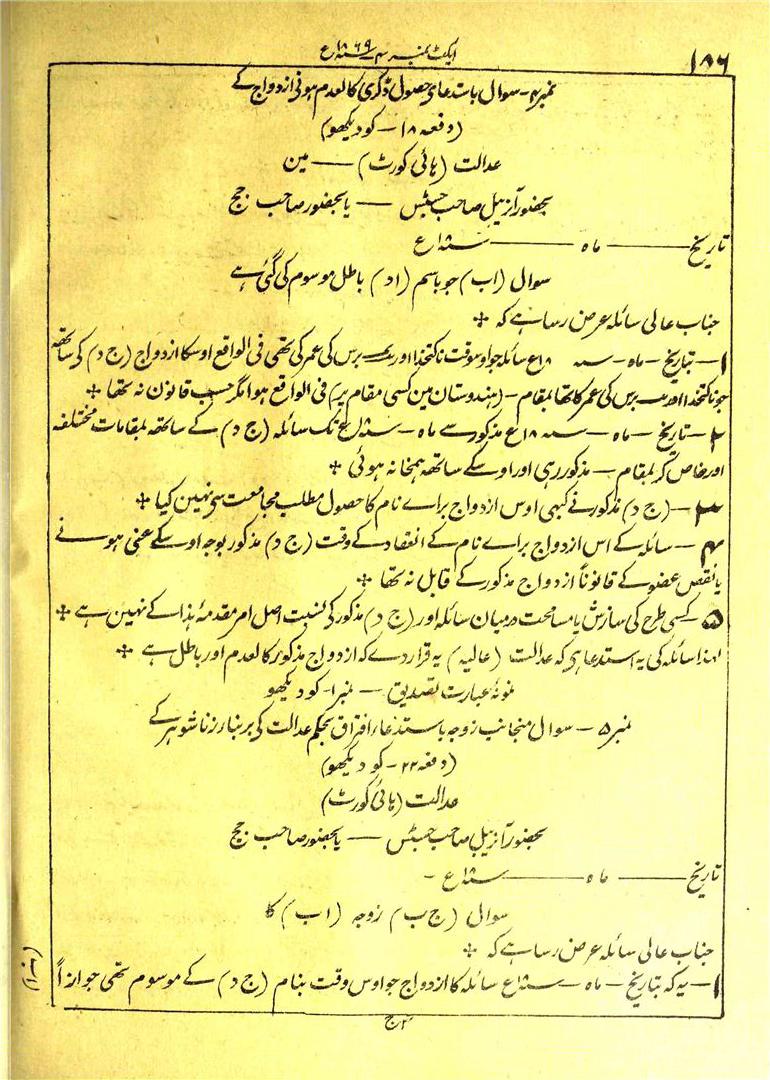 ۱۸۶
ایکٹ نمبر ۴ سنہ ۱۸۶۹ع
نمبر ۴ - سوال باستدعای حصول ڈگری کالعدم ہونی ازدواج کے
(دفعہ ۱۸ - کو دیکھو)
عدالت (ہائی کورٹ) — مین
بحضور آنریبل صاحب جسٹس — یا بحضور صاحب جج
تاریخ — ماہ — سنہ ۱۸ع
سوال (اب) جو باسم (اد) باطل موسوم کی گئی ہے
جناب عالی سائلہ عرض رسا ہے کہ ✣
۱ — بتاریخ — ماہ — سنہ ۱۸ع سائلہ جو اوسوقت ناکتخدا اور — برس کی عمر کی تھی فی الواقع اوسکا ازدواج (ج د) کی ساتھ
جو ناکتخدا اور — برس کی عمر کا تھا بمقام — (ہندوستان مین کسی مقام پر) فی الواقع ہوا مگر حسب قانون نہ تھا ✣
۲ — تاریخ — ماہ — سنہ ۱۸ع مذکور سے ماہ — سنہ ۱۸ع تک سائلہ (ج د) کے ساتھ بمقامات مختلفہ
اور خاص کر بمقام — مذکور رہی اور اوسکے ساتھ ہمخانہ ہوئی ✣
۳ — (ج د) مذکور نے کبھی اوس ازدواج براے نام کا حصول مطلب مجامعت سی نہین کیا ✣
۴ — سائلہ کے اس ازدواج براے نام کے انعقاد کے وقت (ج د) مذکور بوجہ اوسکے عنی ہونے
یا نقص عضو کے قانوناً ازدواج مذکور کے قابل نہ تھا ✣
۵ کسی طرح کی سازش یا مسامحت درمیان سائلہ اور (ج د) مذکور کی نسبت اصل امر مقدمۂ ہذا کے نہین ہے ✣
لہذا سائلہ کی یہ استدعا ہی کہ عدالت (عالیہ) یہ قرار دے کہ ازدواج مذکور کالعدم اور باطل ہے ✣
نمونۂ عبارت تصدیق — نمبر ۱ - کو دیکھو
نمبر ۵ - سوال منجانب زوجہ باستدعاء افتراق بحکم عدالت کی بربناء زنا شوہر کے
(دفعہ ۲۲ - کو دیکھو)
عدالت (ہائی کورٹ)
بحضور آنریبل صاحب جسٹس — یا بحضور صاحب جج
تاریخ — ماہ — سنہ ۱۸ع -
سوال (ج ب) زوجہ (اب) کا
جناب عالی سائلہ عرض رسا ہے کہ ✣
۱ — یہ کہ بتاریخ — ماہ — سنہ ۱۸ع سائلہ کا ازدواج جو اوس وقت بنام (ج د) کے موسوم تھی جوازاً